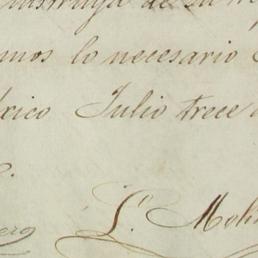 de su
mos lo necesario
rico Julio trece
L. Moli